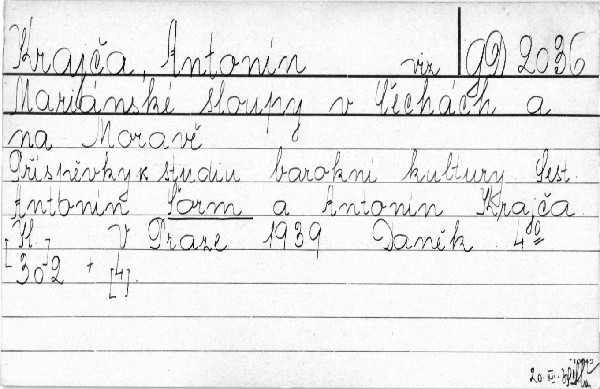 Krajča, Antonín viz gD 2036
Mariánské sloupy v Čechách a
na Moravě
Příspěvky k studiu barokní kultury. Sest.
Antonín Šorm a Antonín Krajča.
[H.] V Praze 1939 Daněk. 4°
302 + [4].